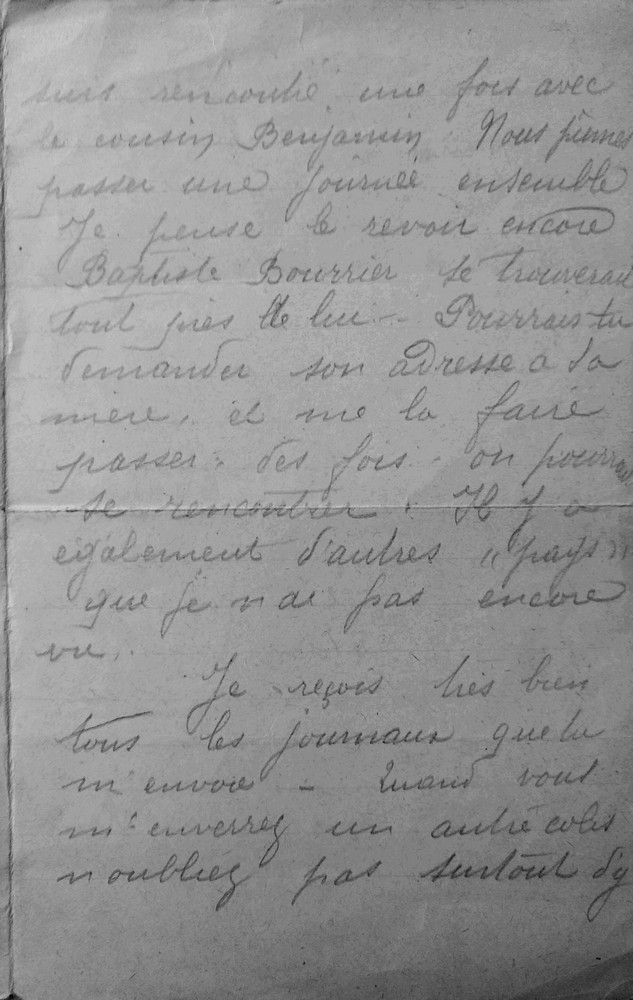 suis rencontré une fois avec
le cousin Benjamin. Nous pûmes
passer une journée ensemble
Je pense le revoir encore
Baptiste Bourrier se trouverait
tout près de lui - Pourrais tu
demander son adresse a sa
mère, et me la faire
passer. des fois. on pourrait
se rencontrer. Il y a
également d'autres "pays"
que je n ai pas encore
vu.
Je reçois très bien
tous les journaux que tu
m'envoie - Quand vous
m'enverrez un autre colis
n oubliez pas surtout d'y